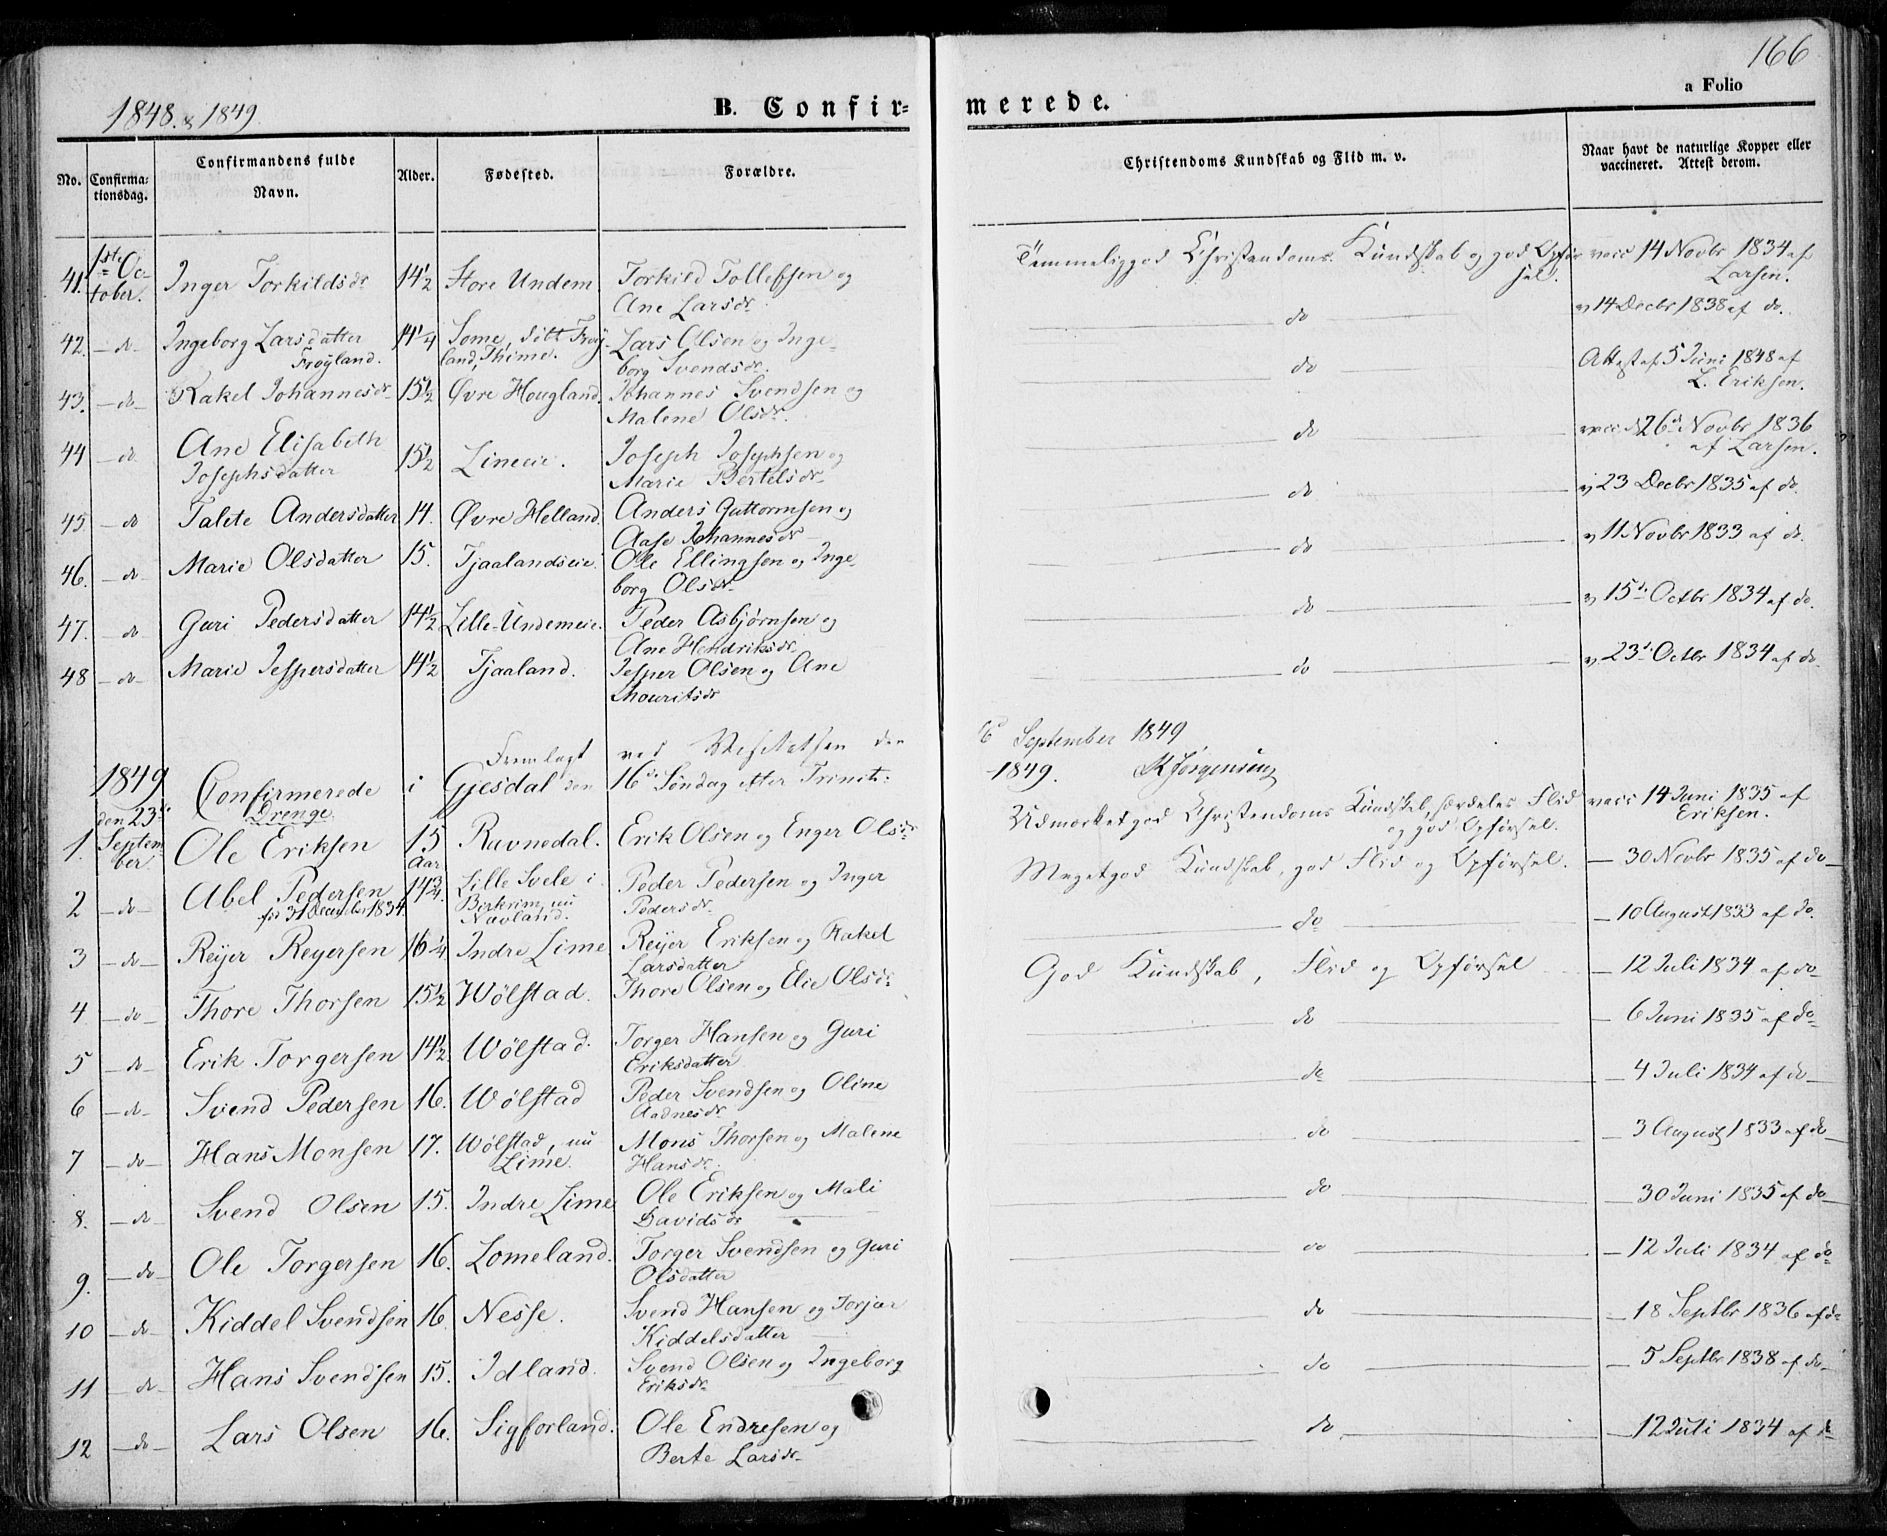 166
1848 & 1849.
B. Confir-
merede.
a Folio
No.
Confirma-
tionsdag.
Confirmandens fulde
Navn.
Alder.
Fødested.
Forældre.
Christendoms Kundskab og Flid m. v.
Naar havt de naturlige Kopper eller
vaccineret. Attest derom.
41. 1ste Oc-
tober. Inger Torkildsdr 14½ Store Undem Torkild Tollefsen og
Ane Larsdr. Temmeliggod Christendoms Kundskab og god Opfør-
sel. vacc 14 Novbr 1834 af
Larsen.
42. -do- Ingeborg Larsdatter
Frøyland. 14¼ Some, døbt Frøy-
land, Thime. Lars Olsen og Inge-
borg Svendsdr. do v 14 Decbr 1838 af do.
43. -do- Rakel Johannesdr 15½ Øvre Hougland. Johannes Svendsen og
Malene Olsdr. do Attest af 5 Juni 1848 af
L. Eriksen.
44 -do- Ane Elisabeth
Josephsdatter 15½ Limeeie. Joseph Josephsen og
Marie Bertelsdr do vacc d 26d Novbr 1836
af Larsen.
45 -do Talete Andersdatter 14. Øvre Helland. Anders Guttormsen og
Aase Johannesdr do v 23 Decbr 1835 af do.
46. -do- Marie Olsdatter 15. Tjaalandseie. Ole Ellingsen og Inge-
borg Olsdr do v 11 Novbr 1833 af do.
47. -do Guri Pedersdatter 14½ Lille-Undemeie. Peder Asbjørnsen og
Ane Hendriksdr do v 15d Octbr 1834 af do.
48 -do- Marie Jespersdatter 14½ Tjaaland. Jesper Olsen og Ane
Mouritsdr do v 23d Octbr 1834 af do.
Fremlagt ved Visitatsen den 6d September 1849
1849 Confirmerede i Gjesdal den 16de Søndag efter Trinit: 1849. R Jørgensen
den 23de Drenge.
1. Septem-
ber. Ole Eriksen 15
Aar Ravnedal. Erik Olsen og Enger Olsdr Udmærket god Christendoms Kundskab, særdeles Flid
og god Opførsel. vacc 14 Juni 1835 af
Eriksen.
2 -do- Abel Pedersen
før 31 December 1834. 14¾ Lille Svele i
Birkrim, nu
Navland. Peder Pedersen og Inger
Pedersdr. Meget god Kundskab, god Flid og Opførsel. 30 Novbr 1835 af do
3 -do- Reyer Reyersen 16¼ Indre Lime Reyer Eriksen og Rakel
Larsdatter do 10 August 1833 af do.
4 -do- Thore Thorsen 15½ Wølstad. Thore Olsen og Elie Olsdr God Kundskab, Flid og Opførsel 12 Juli 1834 af do
5 -do- Erik Torgersen 14½ Wølstad. Torger Hansen og Guri
Eriksdatter do 6 Juni 1835 af do
6 -do- Svend Pedersen 16. Wølstad Peder Svendsen og Oline
Aadnesdr. do 4 Juli 1834 af do
7 -do- Hans Monsen 17. Wølstad, nu
Lime. Mons Thorsen og Malene
Hansdr. do 3 August 1833 af do
8. -do- Svend Olsen 15. Indre Lime Ole Eriksen og Mali
Davidsdr do 30 Juni 1835 af do
9. -do- Ole Torgersen 16. Lomeland. Torger Svendsen og Guri
Olsdatter do 12 Juli 1834 af do
10 -do- Kiddel Svendsen 16. Nesse. Svend Hansen og Torjar
Kiddelsdatter do 18 Septbr 1836 af do
11 -do- Hans Svendsen 15. Idland. Svend Olsen og Ingeborg
Eriksdr do 5 Septbr 1838 af do
12 -do- Lars Olsen 16. Sigforland. Ole Endresen og
Berte Larsdr do 12 Juli 1834 af do